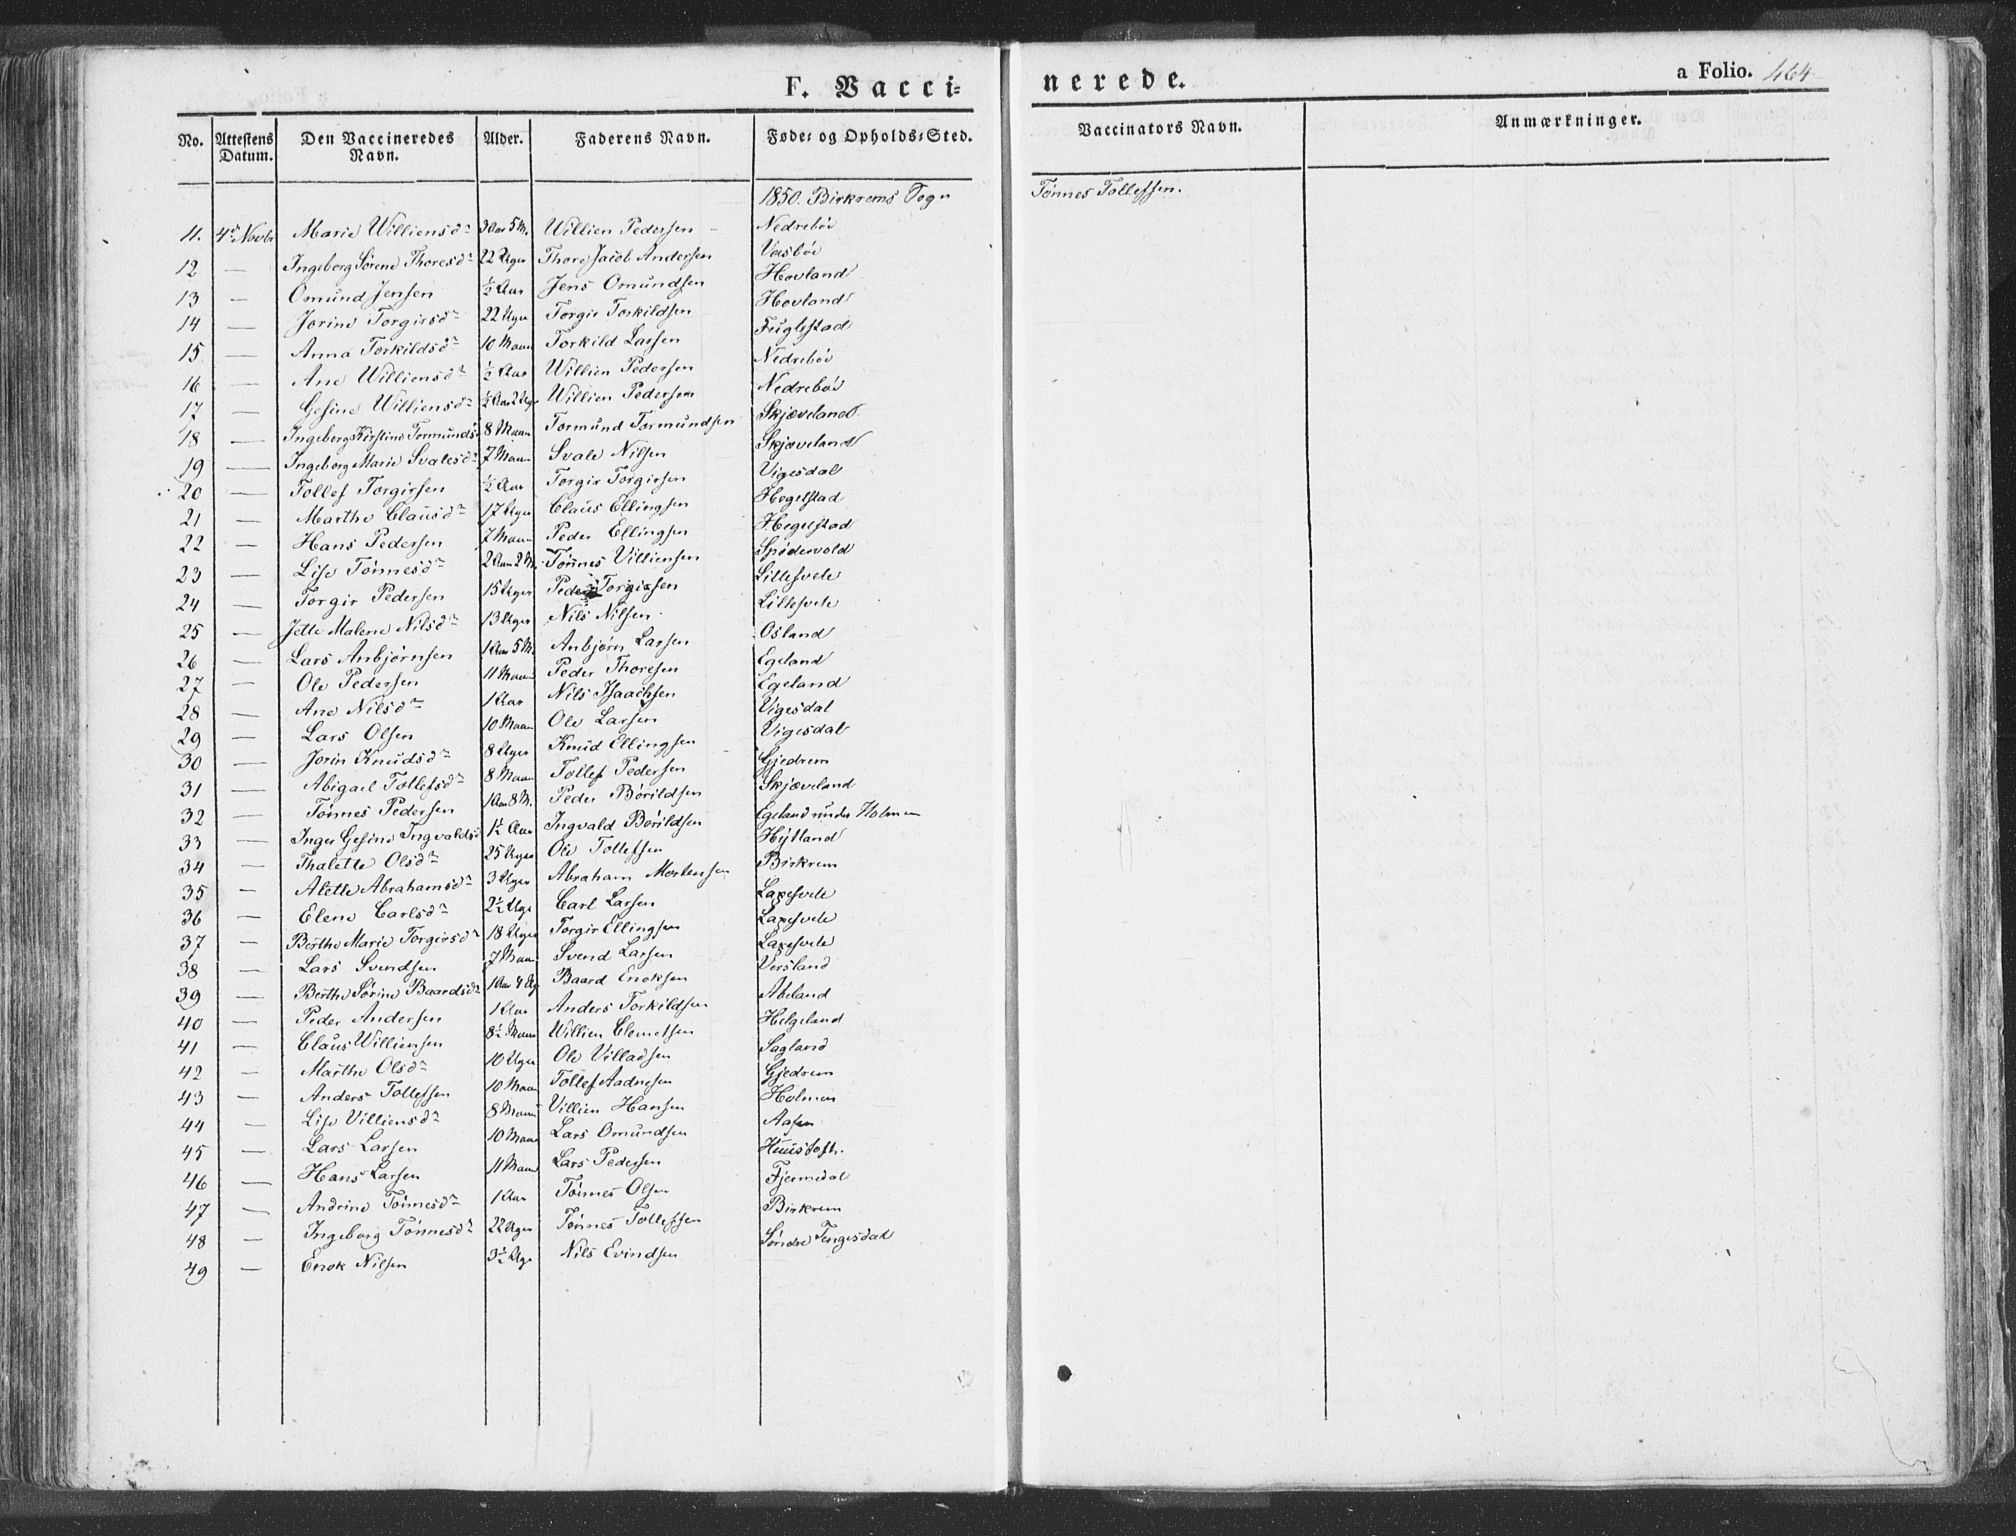 F. Vacci=
nerede.
a Folio. 464
No. Attestens Datum. Den Vaccineredes Navn. Alder. Faderens Navn. Føde= og Opholds=Sted. Vaccinators Navn. Anmærkninger.
1850. Birkrems Sogn Tønnes Tollefsen.
11. 4de Novbr Marie Williensdr 3 Aar 5 M. Willien Pedersen Nedrebøe
12 — Ingeborg Sørene Thoresdr 22 Uger Thore Jacob Andersen Vasbøe
13 — Omund Jensen ½ Aar Jens Omundsen Hovland
14 — Jorine Torgirsdr 22 Uger Torgir Torkildsen Hovland
15 — Anna Torkildsdr 10 Maan Torkild Larsen Fuglestad
16 — Ane Williensdr ½ Aar Willien Pedersen Nedrebøe
17 — Gesine Williensdr ½ Aar 2 Uger Willien Pedersen Nedrebøe
18 — Ingeborg Kirstine Tormundsd 8 Maan Tormund Tormundsen Skjæveland
19 — Ingeborg Marie Svalesdr 7 Maan Svale Nilsen Skjæveland
20 — Tollef Torgirsen ½ Aar Torgir Torgirsen Vigesdal
21 — Marthe Clausdr 17 Uger Claus Ellingsen Hegelstad
22 — Hans Pedersen 7 Maan Peder Ellingsen Hegelstad
23 — Lise Tønnesdr 2 Aar 2 M. Tønnes Villiensen Spødervold
24 — Torgir Pedersen 15 Uger Peder Torgirsen Lillesvele
25 — Jette Malene Nilsdr 13 Uger Nils Nilsen Lillesvele
26 — Lars Anbjørnsen 1 Aar 5 M. Anbjørn Larsen Osland
27 — Ole Pedersen 11 Maan Peder Thoresen Egeland
28 — Ane Nilsdr 1 Aar Nils Isaachsen Egeland
29 — Lars Olsen 10 Maan Ole Larsen Vigesdal
30 — Jorin Knudsdr 8 Uger Knud Ellingsen Vigesdal
31 — Abigael Tollefsdr 8 Maan Tollef Pedersen Gjedrem
32 — Tønnes Pedersen 1 Aar 8 M. Peder Børildsen Skjæveland
33 — Inger Gesine Ingvaldsd 1½ Aar Ingvald Børildsen Egeland under Holmen
34 — Thalette Olsdr 25 Uger Ole Tollefsen Hytland
35 — Alette Abrahamsdr 3 Uger Abraham Mortensen Birkrem
36 — Elene Carlsdr 2½ Uge Carl Larsen Laxesvele
37 — Berthe Marie Torgirsdr 18 Uger Torgir Ellingsen Laxesvele
38 — Lars Svendsen 7 Maan Svend Larsen Laxesvele
39 — Berthe Sørine Baardsdr 1 Aar 4 Ug Baard Enoksen Versland
40 — Peder Andersen 1 Aar Anders Torkildsen Abeland
41 — Claus Williensen 8½ Maan Willien Clemetsen Helgeland
42 — Marthe Olsdr 10 Uger Ole Villadsen Sagland
43 — Anders Tollefsen 10 Maan Tollef Aadnesen Gjedrem
44 — Lise Villiensdr 8 Maan Villien Hansen Holmen
45 — Lars Larsen 10 Maan Lars Omundsen Aasen
46 — Hans Larsen 11 Maan Lars Pedersen Huustoft.
47 — Andrine Tønnesdr 1 Aar Tønnes Olsen Fjermedal
48 — Ingeborg Tønnesdr 22 Uger Tønnes Tollefsen Birkrem
49 — Enok Nilsen 3½ Uge Nils Evindsen Søndre Tengesdal